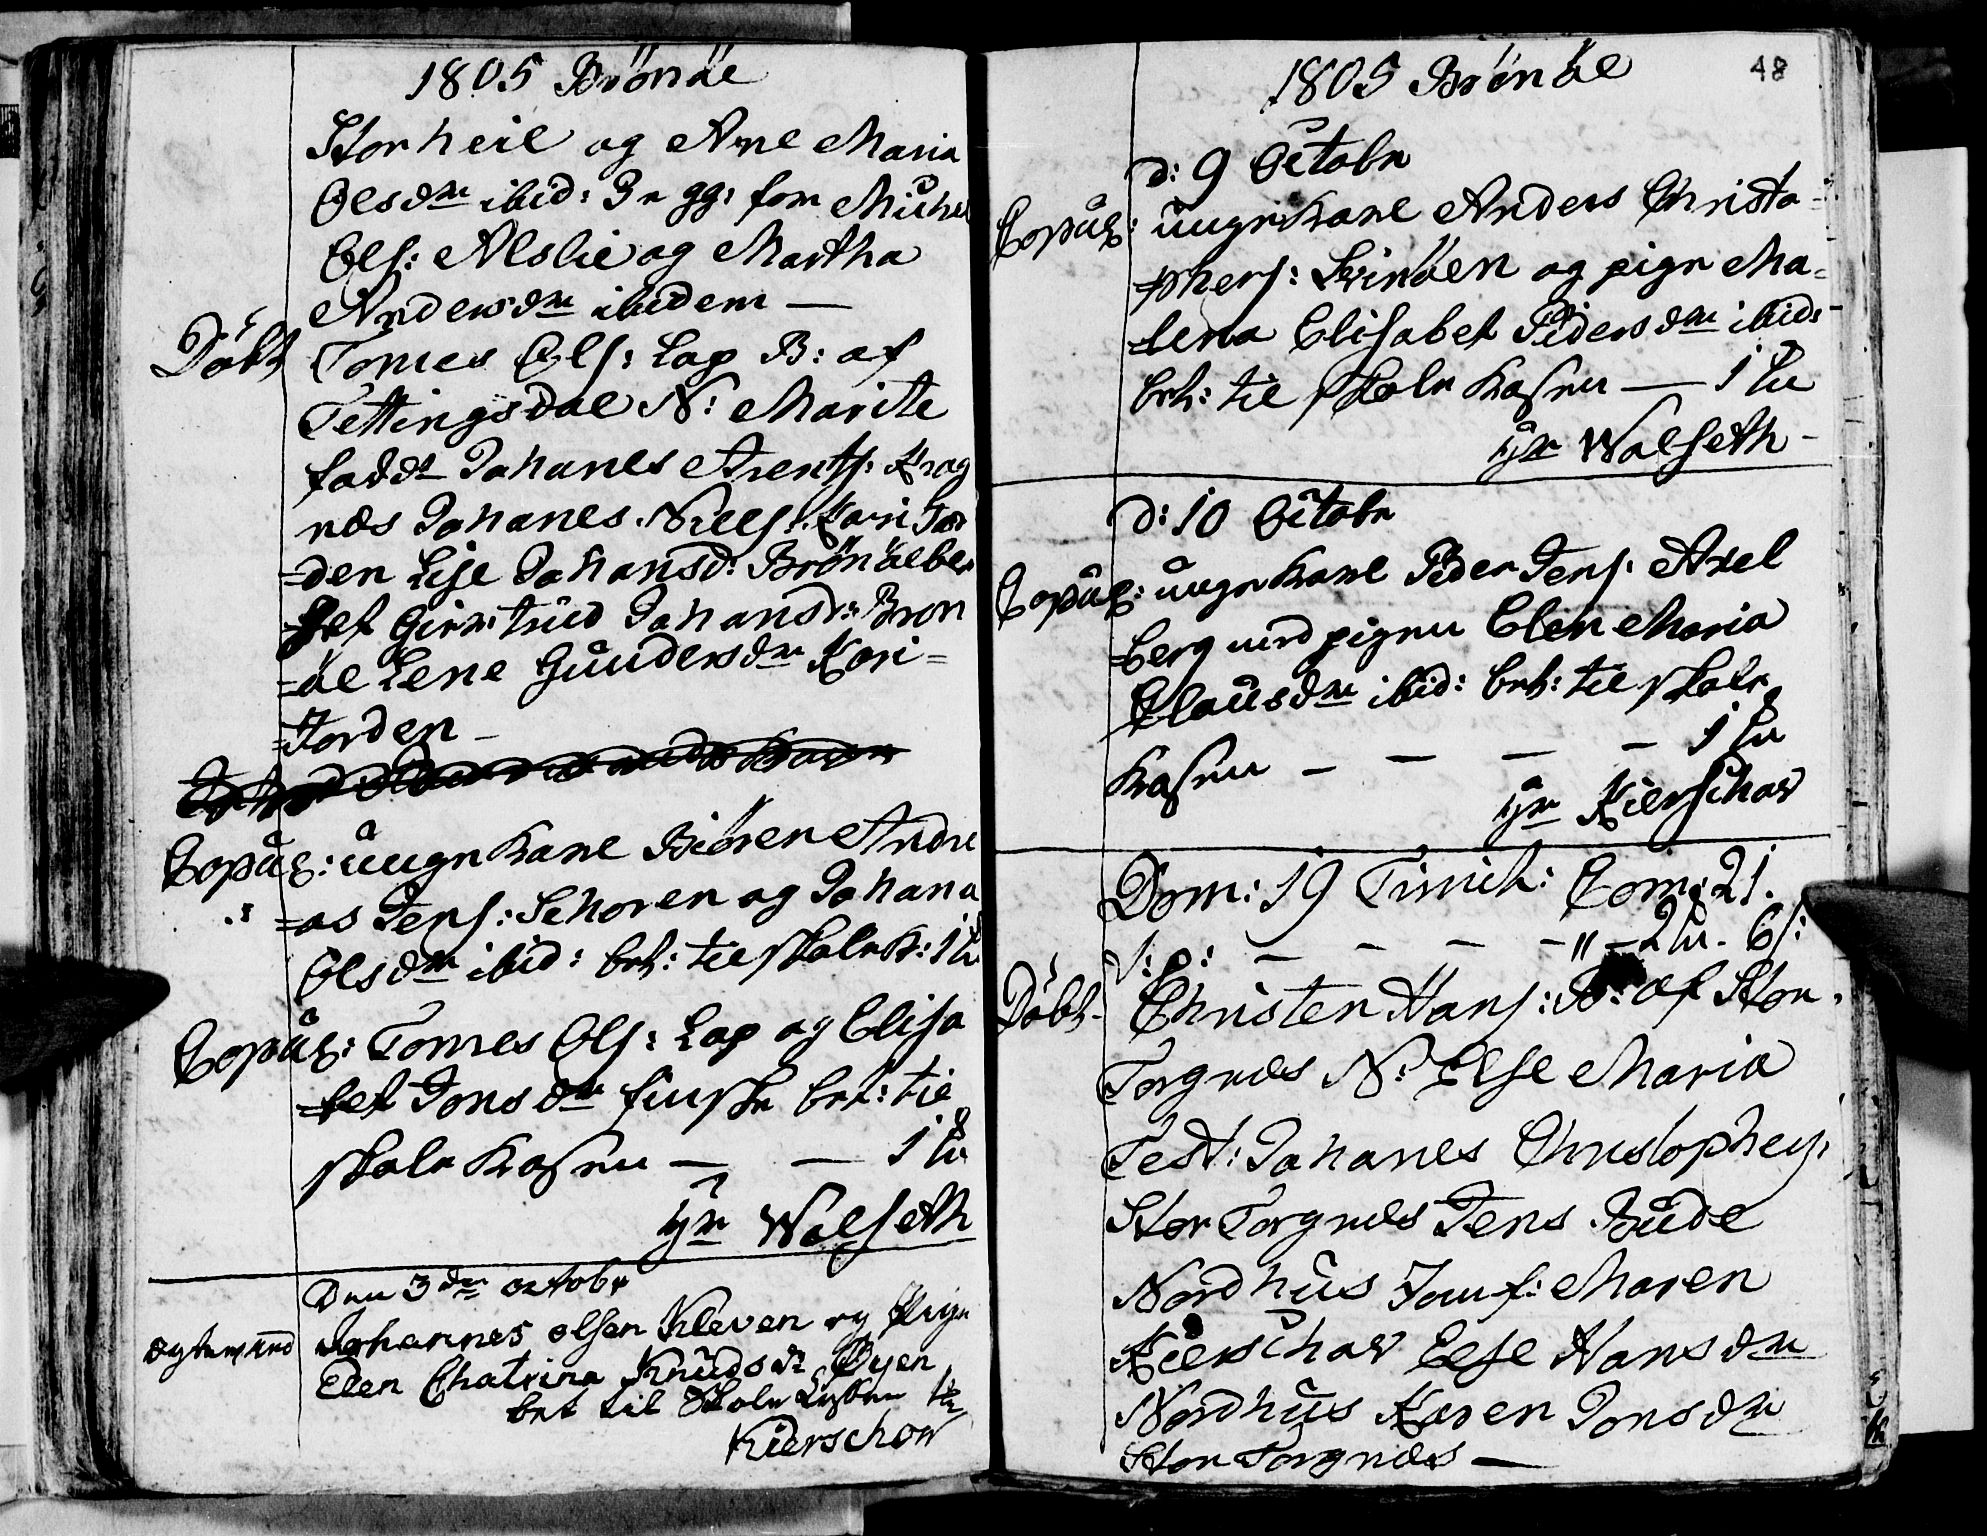 1805 Brönöe
Storheil og Ane Maria
Olsdtr ibid: 3n gg: for Michel
Ols: Alslie og Martha
Andersdtr ibidem —
Döbt Tomes Ols: Lap B: af
Tettingsdal N: Marite
fadd: Johanes Arents: Krog
næs Johanes Niels: Kari Tor
=den Lise Johansd: Brönöeber
=get Giertrud Johansd: Brön
=öe Lene Gundersdtr Kori=
=Torden —
Copul: ungkarl Biören Andre
=as Jens: Schoren og Johana
Olsdtr ibid: bet: til skole k: 1
Copul: Tomes Ols: Lap og Elisa
=bet Jonsdtr finske bet: til
skole Kassen — — 1
hr Wolseth
Den 3de octobr
ægteviand Johannes olsen Kleven og Pige
Elen Chatrina Knudsdr Øyen
bet til Skole Kassen
Kierschow
48
1805 Brönöe
d: 9 Octobr
Copul: ungkarl Anders Christo=
=phers: Tvinöen og pige Ma=
=lena Elisabet Pedersdtr ibid:
bet: til skole Kassen — 1
hr Wolseth —
d: 10 Octobr
Copul: ungkarl Peder Jens: Axel
=berg med pigen Elen Maria
Clausdtr ibid: bet: til skole
Kassen — — — — 1
hr Kierschow
Dom: 19 Trinit: Com: 21.
s: p: — — — — „ — 2 6 s:
Döbt — Christen Hans: B: af Stor
Torgnæs N: Else Maria
Test: Johanes Christophers:
Stor Torgnæs Jens Bude
Nordhus Jomf: Maren
Kierschow Else Hansdtr
Nordhus Karen Jonsdtr
Stor Torgnæs —